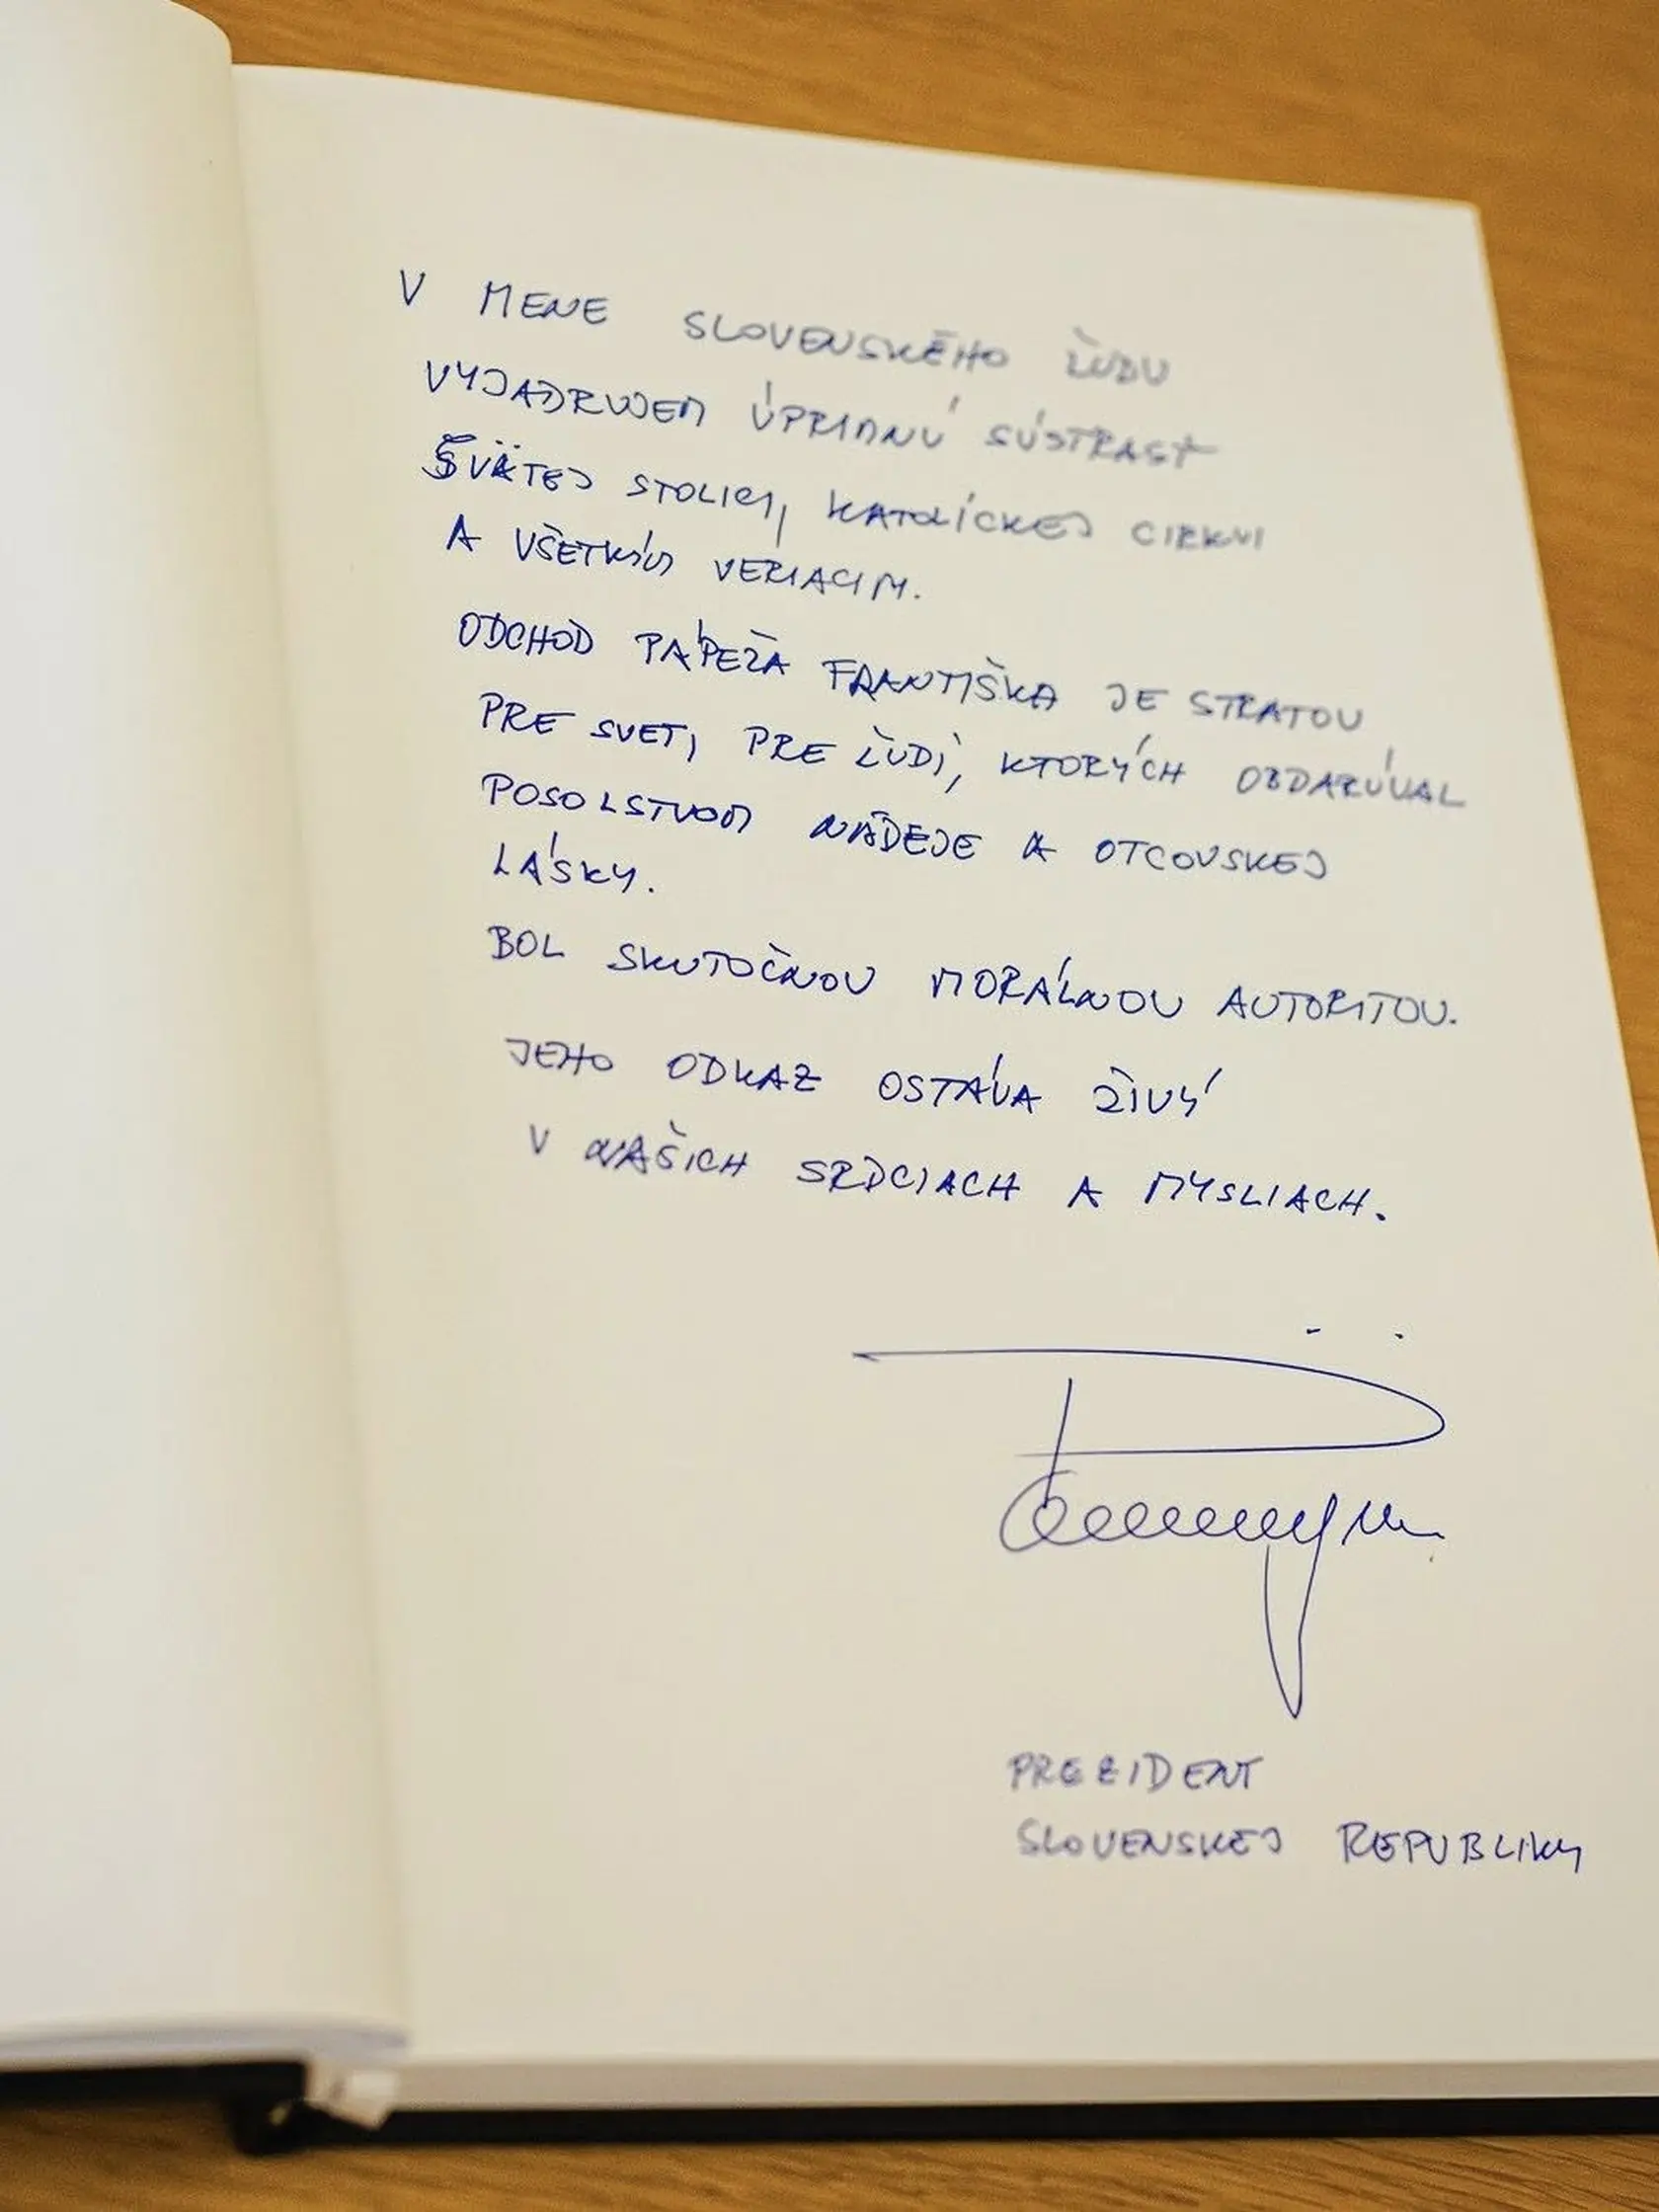 V MENE SLOVENSKÉHO ĽUDU
VYJADRUJEM ÚPRIMNÚ SÚSTRASŤ
SVÄTEJ STOLICI, KATOLÍCKEJ CIRKVI
A VŠETKÝM VERIACIM.
ODCHOD PÁPEŽA FRANTIŠKA JE STRATOU
PRE SVET, PRE ĽUDÍ, KTORÝCH OBDARÚVAL
POSOLSTVOM NÁDEJE A OTCOVSKEJ
LÁSKY.
BOL SKUTOČNOU MORÁLNOU AUTORITOU.
JEHO ODKAZ OSTÁVA ŽIVÝ
V NAŠICH SRDCIACH A MYSLIACH.
PREZIDENT
SLOVENSKEJ REPUBLIKY